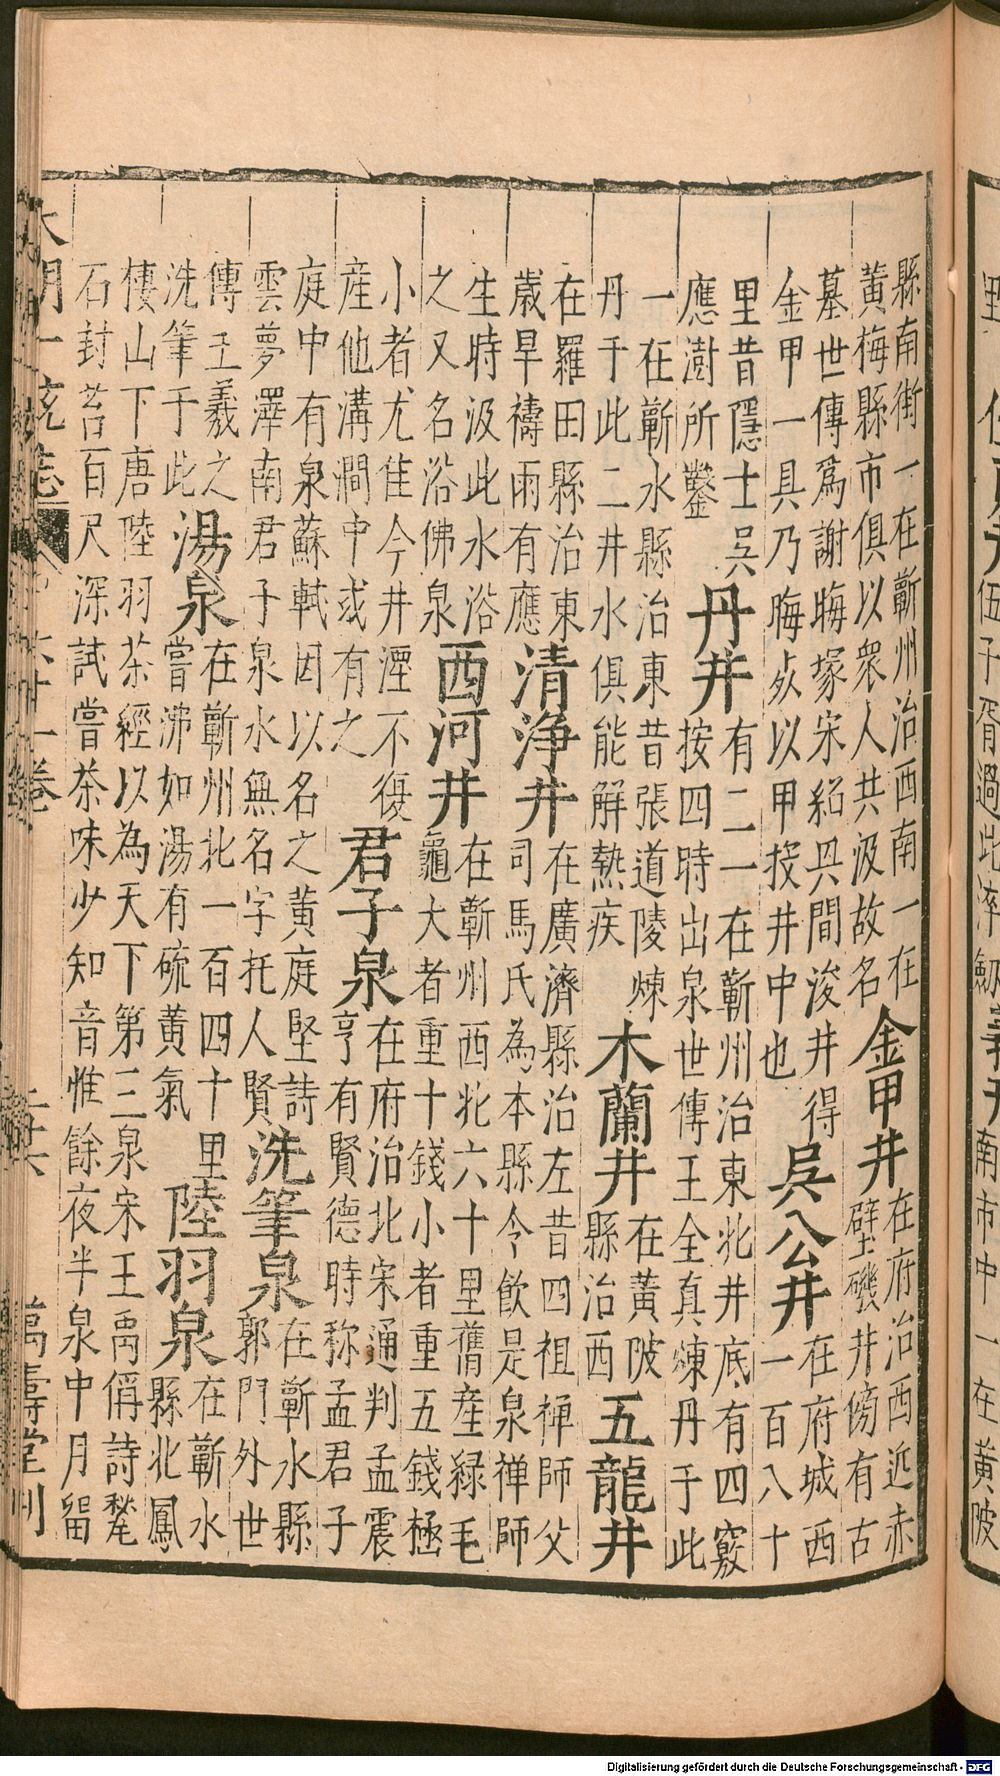 伍子胥過此淬劍 南市中一在黃陂
縣南街一在蘄州治西南一在
黃梅縣市俱以眾人共汲故名
金甲井
在府治西近赤
壁磯井傍有古
墓世傳爲謝晦塚宋紹興間浚井得
金甲一具乃晦死以甲投井中也
吳公井
在府城西
一百八十
里昔隱士吳
應澍所鑿
丹井
有二一在蘄州治東北井底有四竅
按四時出泉世傳王全真煉丹于此
一在蘄水縣治東昔張道陵煉
丹于此二井水俱能解熱疾
木蘭井
在黃陂
縣治西
五龍井
在羅田縣治東
歲旱禱雨有應
清淨井
在廣濟縣治左昔四祖禪師父
司馬氏為本縣令飲是泉禪師
生時汲此水浴
之又名浴佛泉
西河井
在蘄州西北六十里舊產緑毛
龜大者重十錢小者重五錢極
小者尤佳今井湮不復
産他溝澗中或有之
君子泉
在府治北宋通判孟震
亨有賢德時称孟君子
庭中有泉蘇軾因以名之黃庭堅詩
雲夢澤南君子泉水無名字托人賢
洗筆泉
在蘄水縣
郭門外世
傳王羲之
洗筆于此
湯泉
在蘄州北一百四十里
嘗沸如湯有硫黃氣
陸羽泉
在蘄水
縣北鳳
棲山下唐陸羽茶經以為天下第三泉宋王禹偁詩甃
石封苔百尺深試嘗茶味少知音惟餘夜半泉中月留
大明一統志 萬壽堂刊
Digitalisierung gefördert durch die Deutsche Forschungsgemeinschaft - DFG